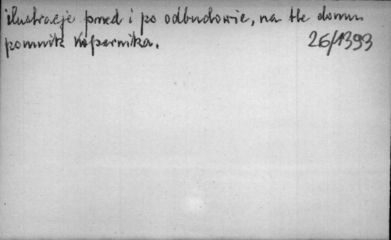 ilustracje przed i po odbudowie, na tle domu
pomnik Kopernika.
26/1393